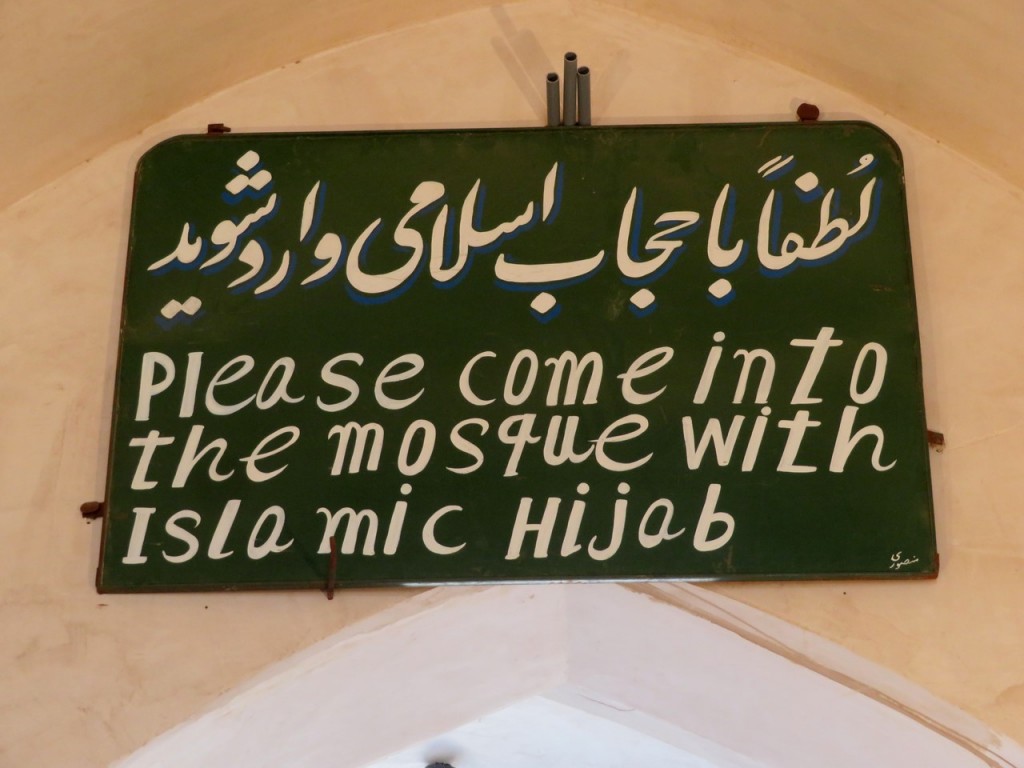 لطفاً با حجاب اسلامی وارد شوید
Please come into
the mosque with
Islamic Hijab
منصوری